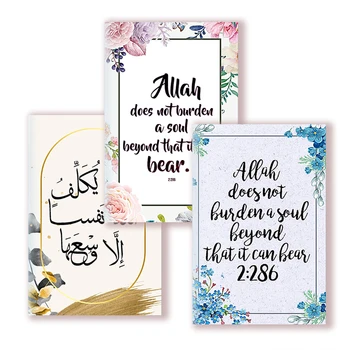 Allah
does not burden
a soul
beyond that it
bear.
2:286
يُكَلِّفُ
نَفْسًا
إِلَّا وُسْعَهَا
Allah
does not
burden a soul
beyond
that it can bear
2:286